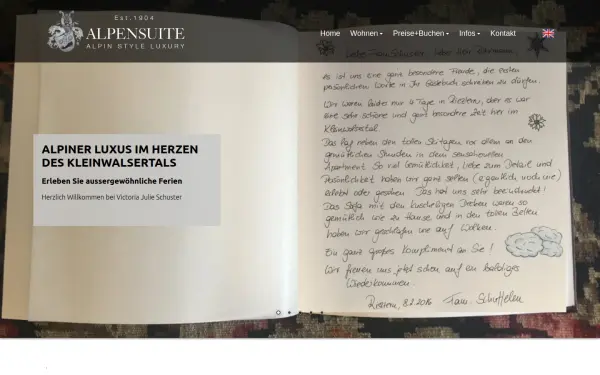 Est.1904
ALPENSUITE
ALPIN STYLE LUXURY
Home Wohnen Preise+Buchen Infos Kontakt
ALPINER LUXUS IM HERZEN
DES KLEINWALSERTALS
Erleben Sie aussergewöhnliche Ferien
Herzlich Willkommen bei Victoria Julie Schuster
Liebe Frau Schuster, liebe Herr
es ist uns eine ganz besondere Freude, die ersten
persönlichen Worte in Ihr Gästebuch schreiben zu dürfen.
Wir waren leider nur 4 Tage in Riezlern, aber es war
eine sehr schöne und ganz besondere Zeit hier im
Kleinwalsertal.
Das lag neben den tollen Skitagen vor allem an den
gemütlichen Stunden in dem sensationellen
Apartment. So viel Gemütlichkeit, Liebe zum Detail und
Persönlichkeit haben wir ganz selten (eigentlich noch nie)
erlebt oder gesehen. Das hat uns sehr beeindruckt!
Das Sofa mit den kuscheligen Decken waren so
gemütlich wie zu Hause und in den tollen Betten
haben wir geschlafen wie auf Wolken.
Ein ganz großes Kompliment an Sie!
Wir freuen uns jetzt schon auf ein baldiges
Wiederkommen.
Riezlern, 8.2.2016 Fam.